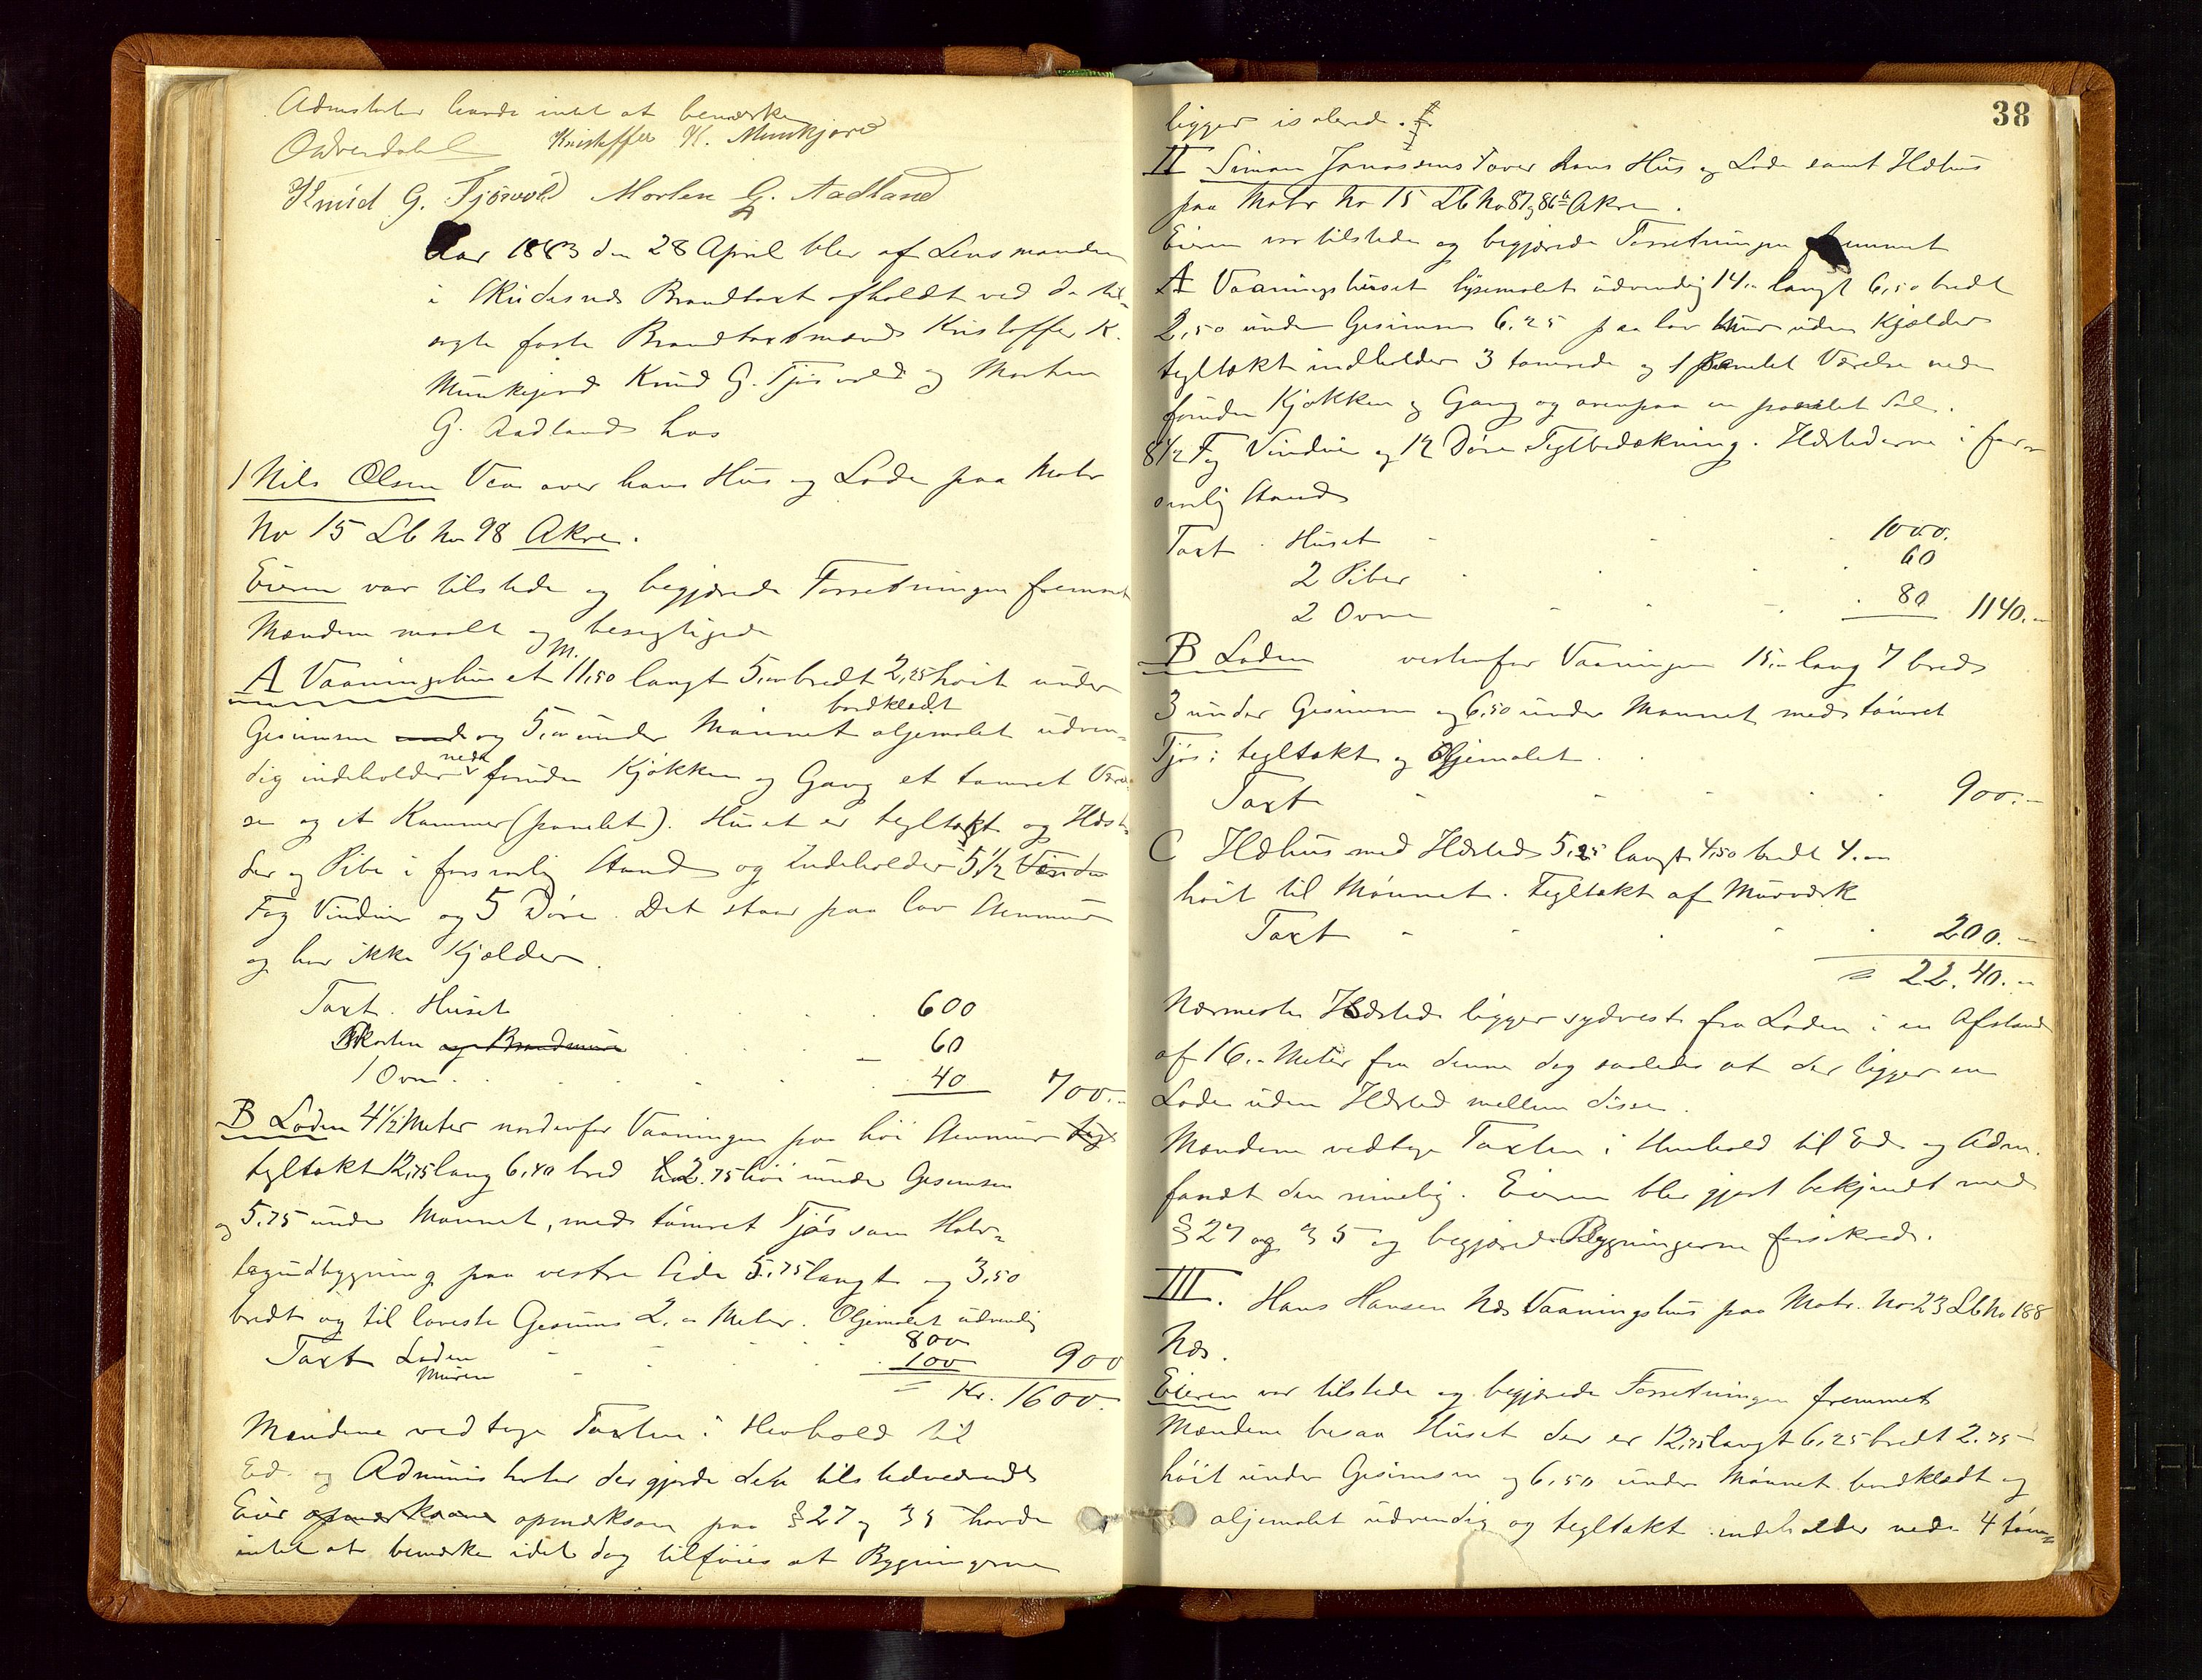 Adminstrator havde intet at bemærke
Kristoffer K. Munkjord
Knud G. Tjøsvold Morten G. Aadland
Aar 1883 den 28 April blev af Lensmanden
i Skudesnes Brandtaxt afholdt ved de til
nevnte faste Brandtaxtmænd Kristoffer K.
Munkejord Knud G. Tjøsvold og Morten
G. Aadland hos
1 Nils Olsen Vea over hans Hus og Lade paa Matr
No 15 Lb No 98 Akre.
Eieren var tilstede og begjærede Forretningen fremmet
Mændene maalt og besigtigede
A Vaaningshuset 11,50 m. langt 5,00 bredt 2,25 høit under
Gesimsen og 5,00 under Mønnet bordklædt oljemalet udven-
dig indeholder nede foruden Kjøkken og Gang et tømret Værel
se og et Kammer (panelet). Huset er tegltækt og Ildste
der og Pibe i forsvarlig Stand og Indeholder 5 1/2
Fag Vinduer og 5 Døre. Det staar paa lav Stenmur
og har ikke Kjælder.
Taxt. Huset 600
Skorsten og Brandmur 60
1 Ovn 40 700.-
B Laden 4 1/2 Meter nordenfor Vaaningen paa høi Stenmur
tegltækt 12,75 lang 6,40 bred 2.75 høi under Gesimsen
og 5.75 under Mønnet, med tømret Fjøs som Halv-
tagudbygning paa vestre Side 5.75 langt og 3,50
bredt og til laveste Gesims 2.- Meter. Oljemalet udvendig
Taxt Laden 800
Muren 100 900
= Kr. 1600.
Mændene vedtoge Taxten i Henhold til
Ed. og Administrator der gjorde dette tilstedeværende
Eier opmærksom paa § 27 og 35 havde
intet at bemærke idet dog tilføies at Bygningerne
38
ligger isolerede.
II Simon Jonassens Taver hans Hus og Lade samt Ildhus
paa Matr No 15 Lb No 87 og 86 b Akre.
Eieren var tilstede og begjærede Forretningen fremmet
A Vaaningshuset lysemalet udvendig 14.- langt 6,50 bredt
2,50 under Gesimsen 6.25 paa lav Mur uden Kjælder
tegltækt indholder 3 tømrede og 1 panelet Værelse neden
foruden Kjøkken og Gang og ovenpaa en panelet Sal.
8 1/2 Fag Vinduer og 12 Døre Teglbedækning. Ildstederne i for-
svarlig Stand
Taxt. Huset 1000.
2 Piber 60
2 Ovne 80 1140.-
B Laden vestenfor Vaaningen 15.- lang 7 bred
3 under Gesimsen og 6,50 under Mønnet med tømret
Fjøs; tegltækt og Oljemalet.
Taxt 900.-
C Ildhus med Ildsted 5,25 langt 4,50 bredt 4.-
høit til Mønnet. Tegltækt af Murværk
Taxt 200.-
= 22.40.-
Nærmeste Ildsted ligger sydvest fra Laden i en Afstand
af 16.- Meter fra denne dog saaledes at der ligger en
Lade uden Ildsted mellem disse.
Mændene vedtoge Taxten i Henhold til Ed. og Adm.
fandt den rimelig. Eieren blev gjort bekjendt med
§ 27 og 35 og begjærede Bygningerne forsikrede.
III. Hans Hansen Næs Vaaningshus paa Matr. No 23 Lb No 188
Næs.
Eieren var tilstede og begjærede Forretningen fremmet
Mændene besaa Huset der er 12,75 langt 6.25 bredt 2.75
høit under Gesimsen og 6,50 under Mønnet bordklædt og
oljemalet udvendig og tegltækt indeholder nede 4 tøm=